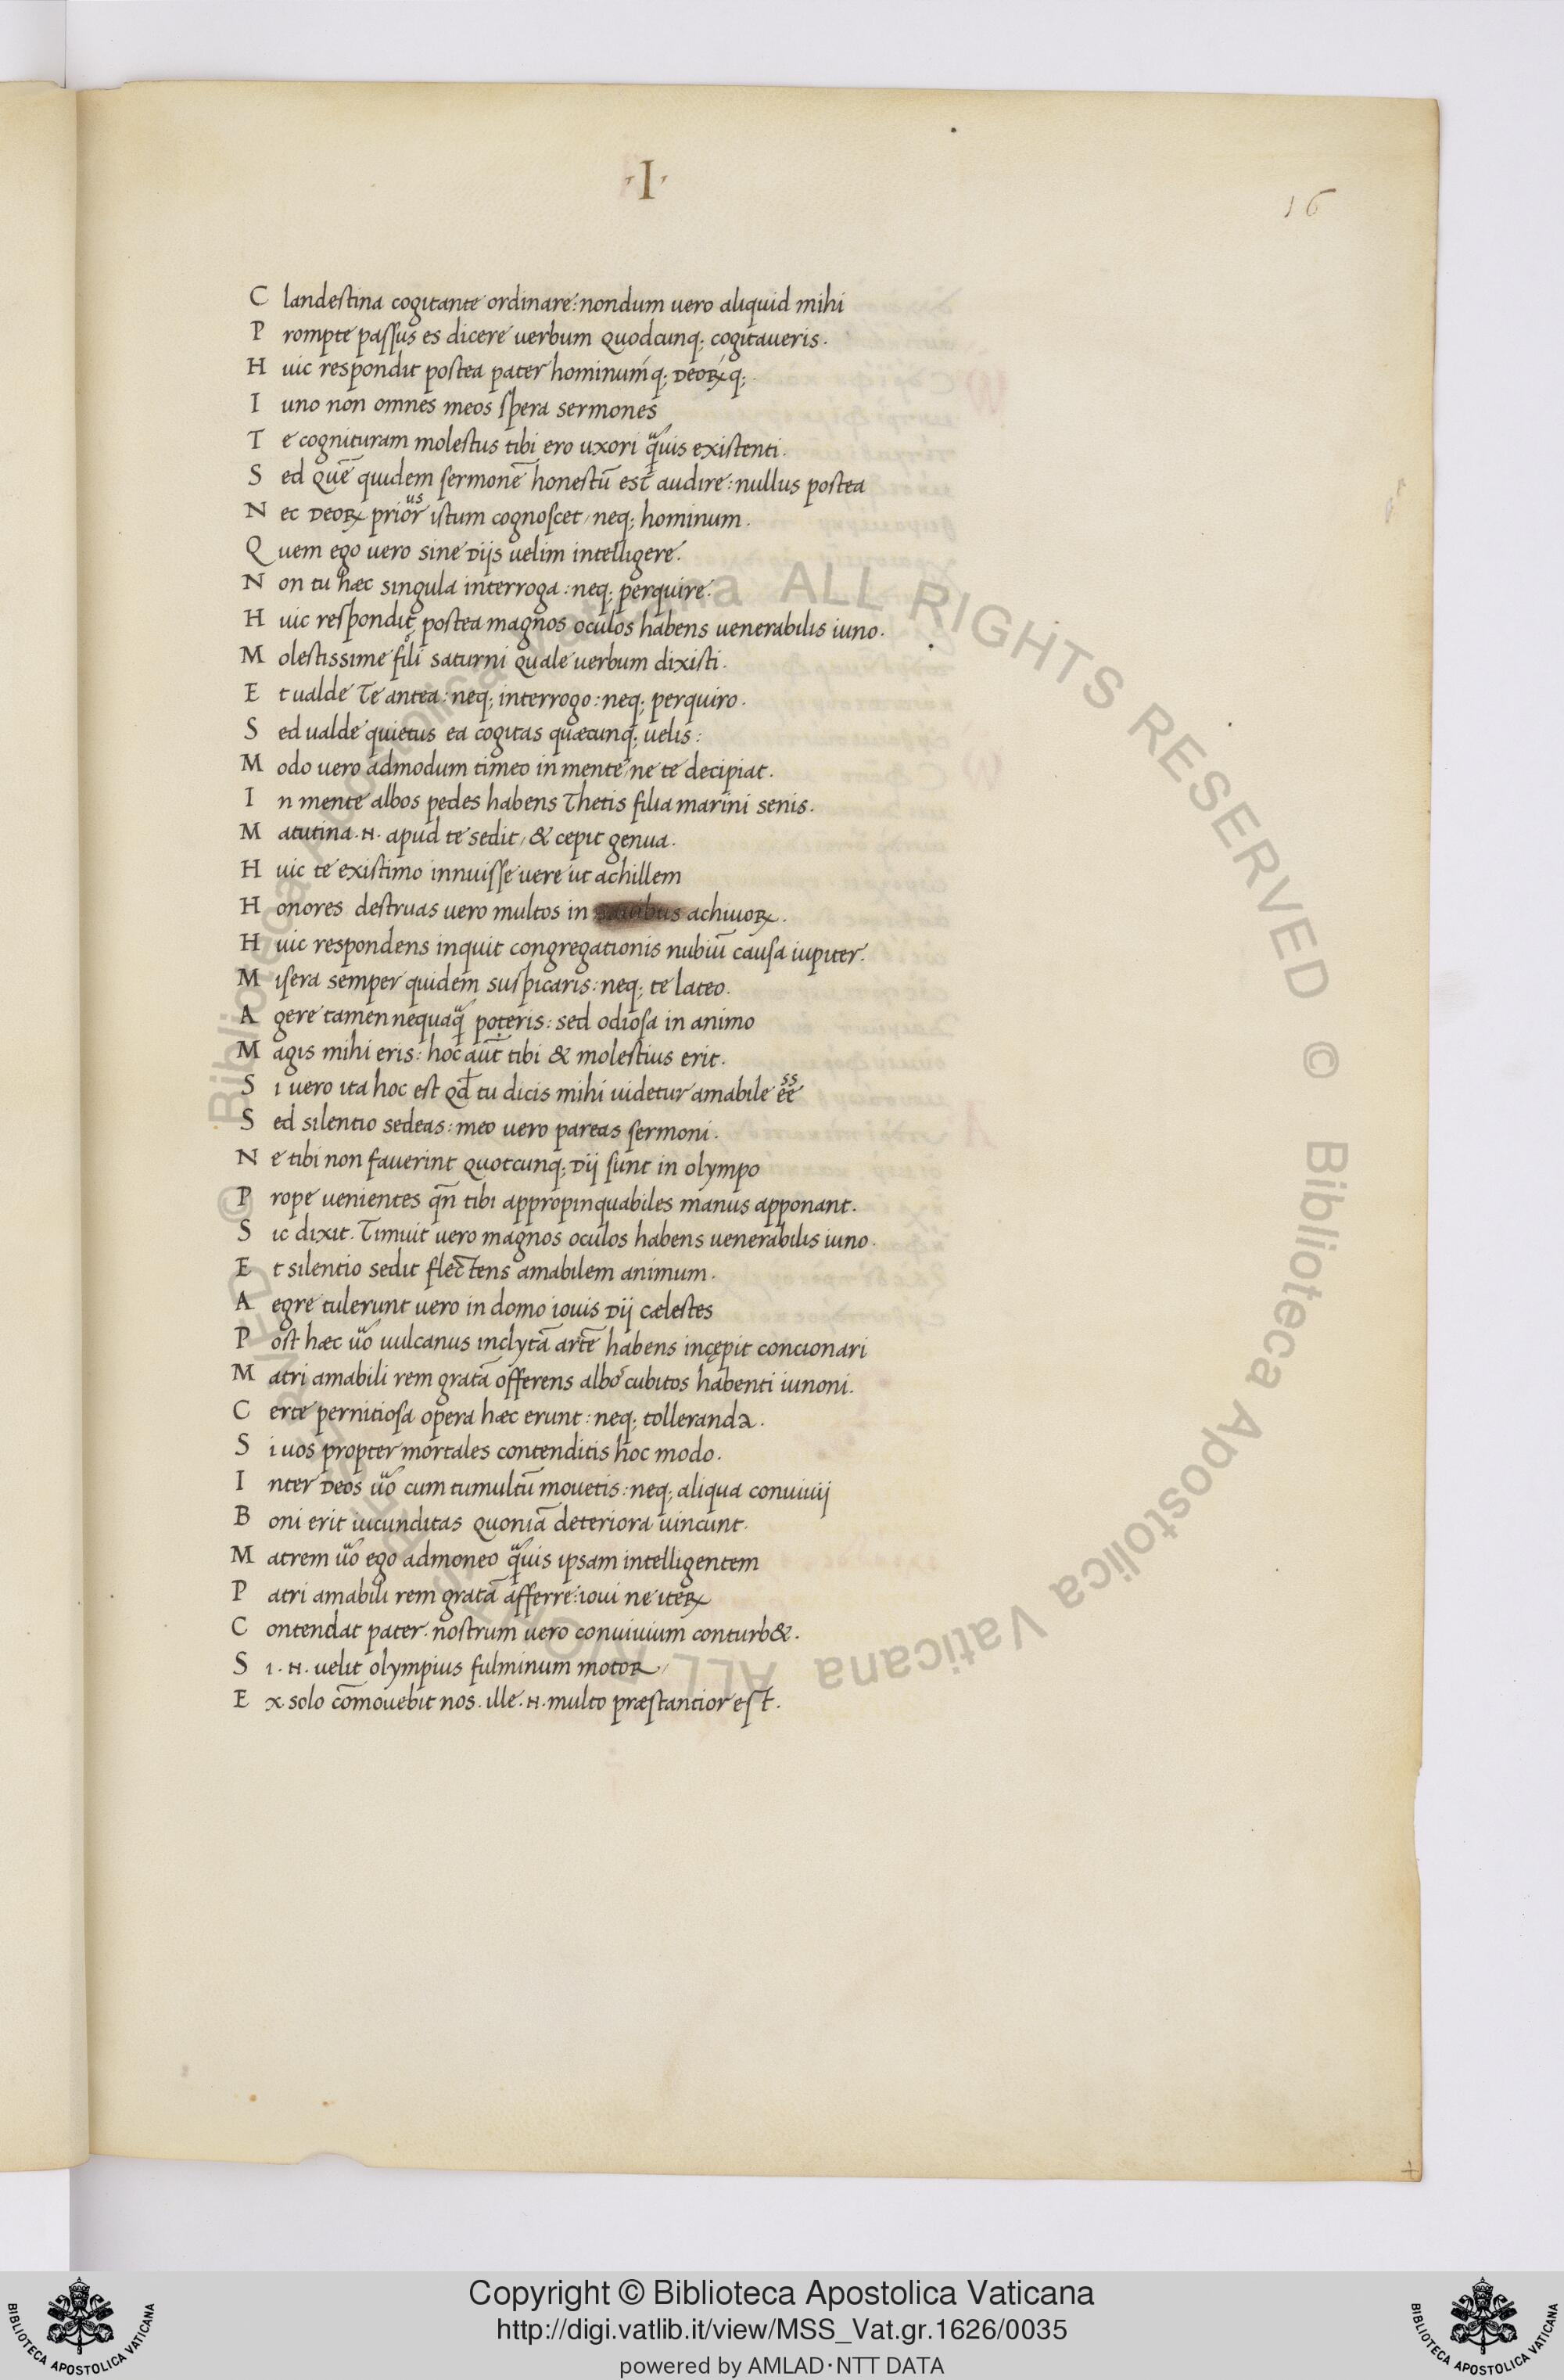 ·I·
16
C landestina cogitante ordinare: nondum uero aliquid mihi
P rompte passus es dicere uerbum quodcunq; cogitaueris.
H uic respondit postea pater hominumq; DEOꝜq;
I uno non omnes meos spera sermones
T e cognituram molestus tibi ero uxori q̃uis existenti.
S ed quẽ quidem sermonẽ honestũ est audire: nullus postea
N ec DEOꝜ prior us istum cognoscet, neq; hominum.
Q uem ego uero sine Dijs uelim intelligere.
N on tu hæc singula interroga: neq; perquire.
H uic respondit postea magnos oculos habens uenerabilis iuno.
M olestissime fili saturni quale uerbum dixisti.
E t ualde Te antea: neq; interrogo: neq; perquiro.
S ed ualde quietus ea cogitas quæcunq; uelis:
M odo uero admodum timeo in mente, ne te decipiat.
I n mente albos pedes habens Thetis filia marini senis.
M atutina .H. apud te sedit, & cepit genua.
H uic te existimo innuisse uere ut achillem
H onores destruas uero multos in achiuoꝜ.
H uic respondens inquit congregationis nubiũ causa iupiter.
M isera semper quidem suspicaris: neq; te lateo.
A gere tamen nequaq̃ poteris: sed odiosa in animo
M agis mihi eris: hoc aut̃ tibi & molestius erit.
S i uero ita hoc est qd̃ tu dicis mihi uidetur amabile ẽe ss
S ed silentio sedeas: meo uero pareas sermoni.
N e tibi non fauerint quotcunq; Dij sunt in olympo
P rope uenientes qñ tibi appropinquabiles manus apponant.
S ic dixit. Timuit uero magnos oculos habens uenerabilis iuno.
E t silentio sedit flectens amabilem animum.
A egre tulerunt uero in domo iouis Dij cælestes
P ost hæc ũo uulcanus inclytã artẽ habens incępit concionari
M atri amabili rem gratã offerens albo cubitos habenti iunoni.
C erte pernitiosa opera hæc erunt: neq; tolleranda.
S i uos propter mortales contenditis hoc modo.
I nter DEOS ũo cum tumultũ mouetis: neq; aliqua conuiuij
B oni erit iucunditas quoniã deteriora uincunt.
M atrem ũo ego admoneo q̃uis ipsam intelligentem
P atri amabili rem gratã afferre: ioui ne iteꝜ
C ontendat pater. nostrum uero conuiuium conturb&.
S i .H. uelit olympius fulminum motoR,
E x solo cõmouebit nos. ille .H. multo præstantior est.
Copyright © Biblioteca Apostolica Vaticana
http://digi.vatlib.it/view/MSS_Vat.gr.1626/0035
powered by AMLAD·NTT DATA
BIBLIOTECA APOSTOLICA VATICANA
BIBLIOTECA APOSTOLICA VATICANA
© Biblioteca Apostolica Vaticana ALL RIGHTS RESERVED © Biblioteca Apostolica Vaticana ALL RIGHTS RESERVED